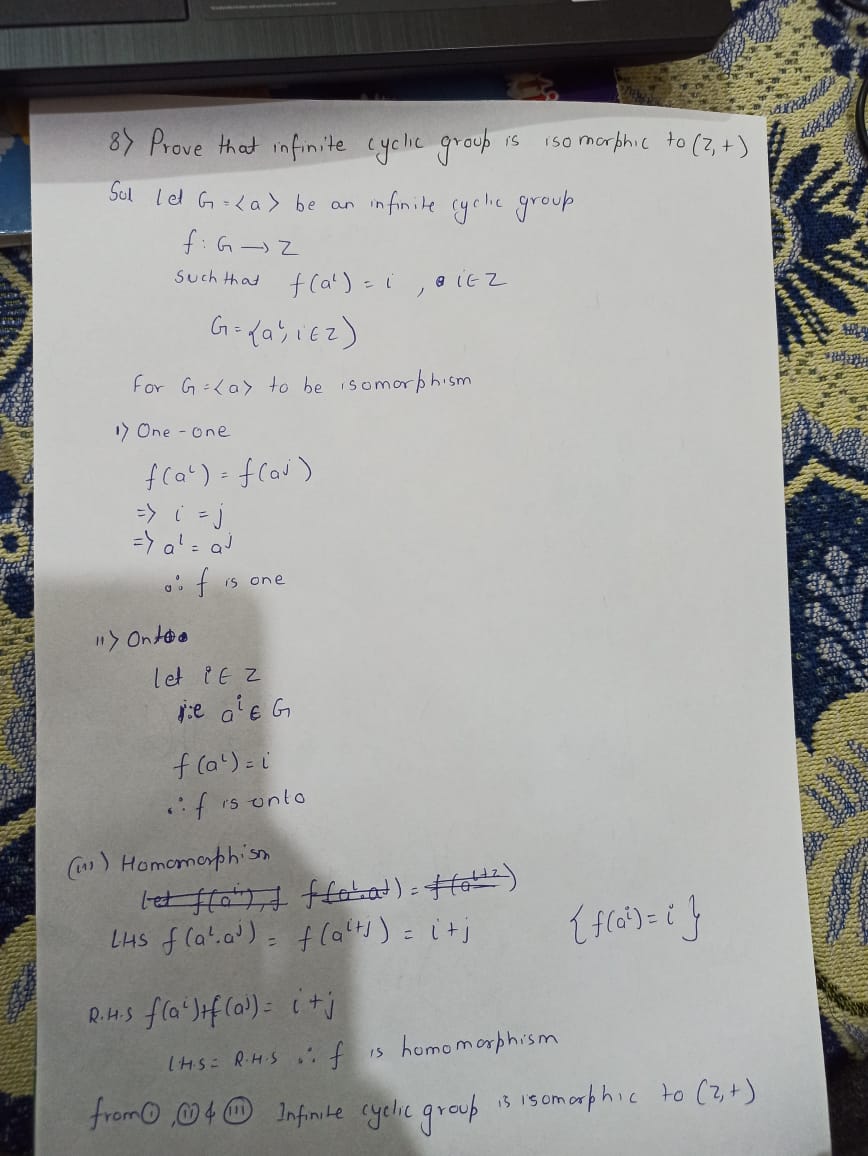 8) Prove that infinite cyclic group is isomorphic to (Z, +)
Sol let G = <a> be an infinite cyclic group
f : G → Z
Such that f(aⁱ) = i , i ∈ Z
G = {aⁱ, i ∈ Z)
For G = <a> to be isomorphism
i) One - one
f(aⁱ) = f(aʲ)
=> i = j
=> aⁱ = aʲ
∴ f is one
ii) Onto
let i ∈ Z
i.e aⁱ ∈ G
f(aⁱ) = i
∴ f is onto
(iii) Homomorphism
LHS f(aⁱ.aʲ) = f(aⁱ⁺ʲ) = i + j { f(aⁱ) = i }
R.H.S f(aⁱ)+f(aʲ) = i + j
LHS = R.H.S ∴ f is homomorphism
from ⓘ, ⓘⓘ & ⓘⓘⓘ Infinite cyclic group is isomorphic to (Z, +)